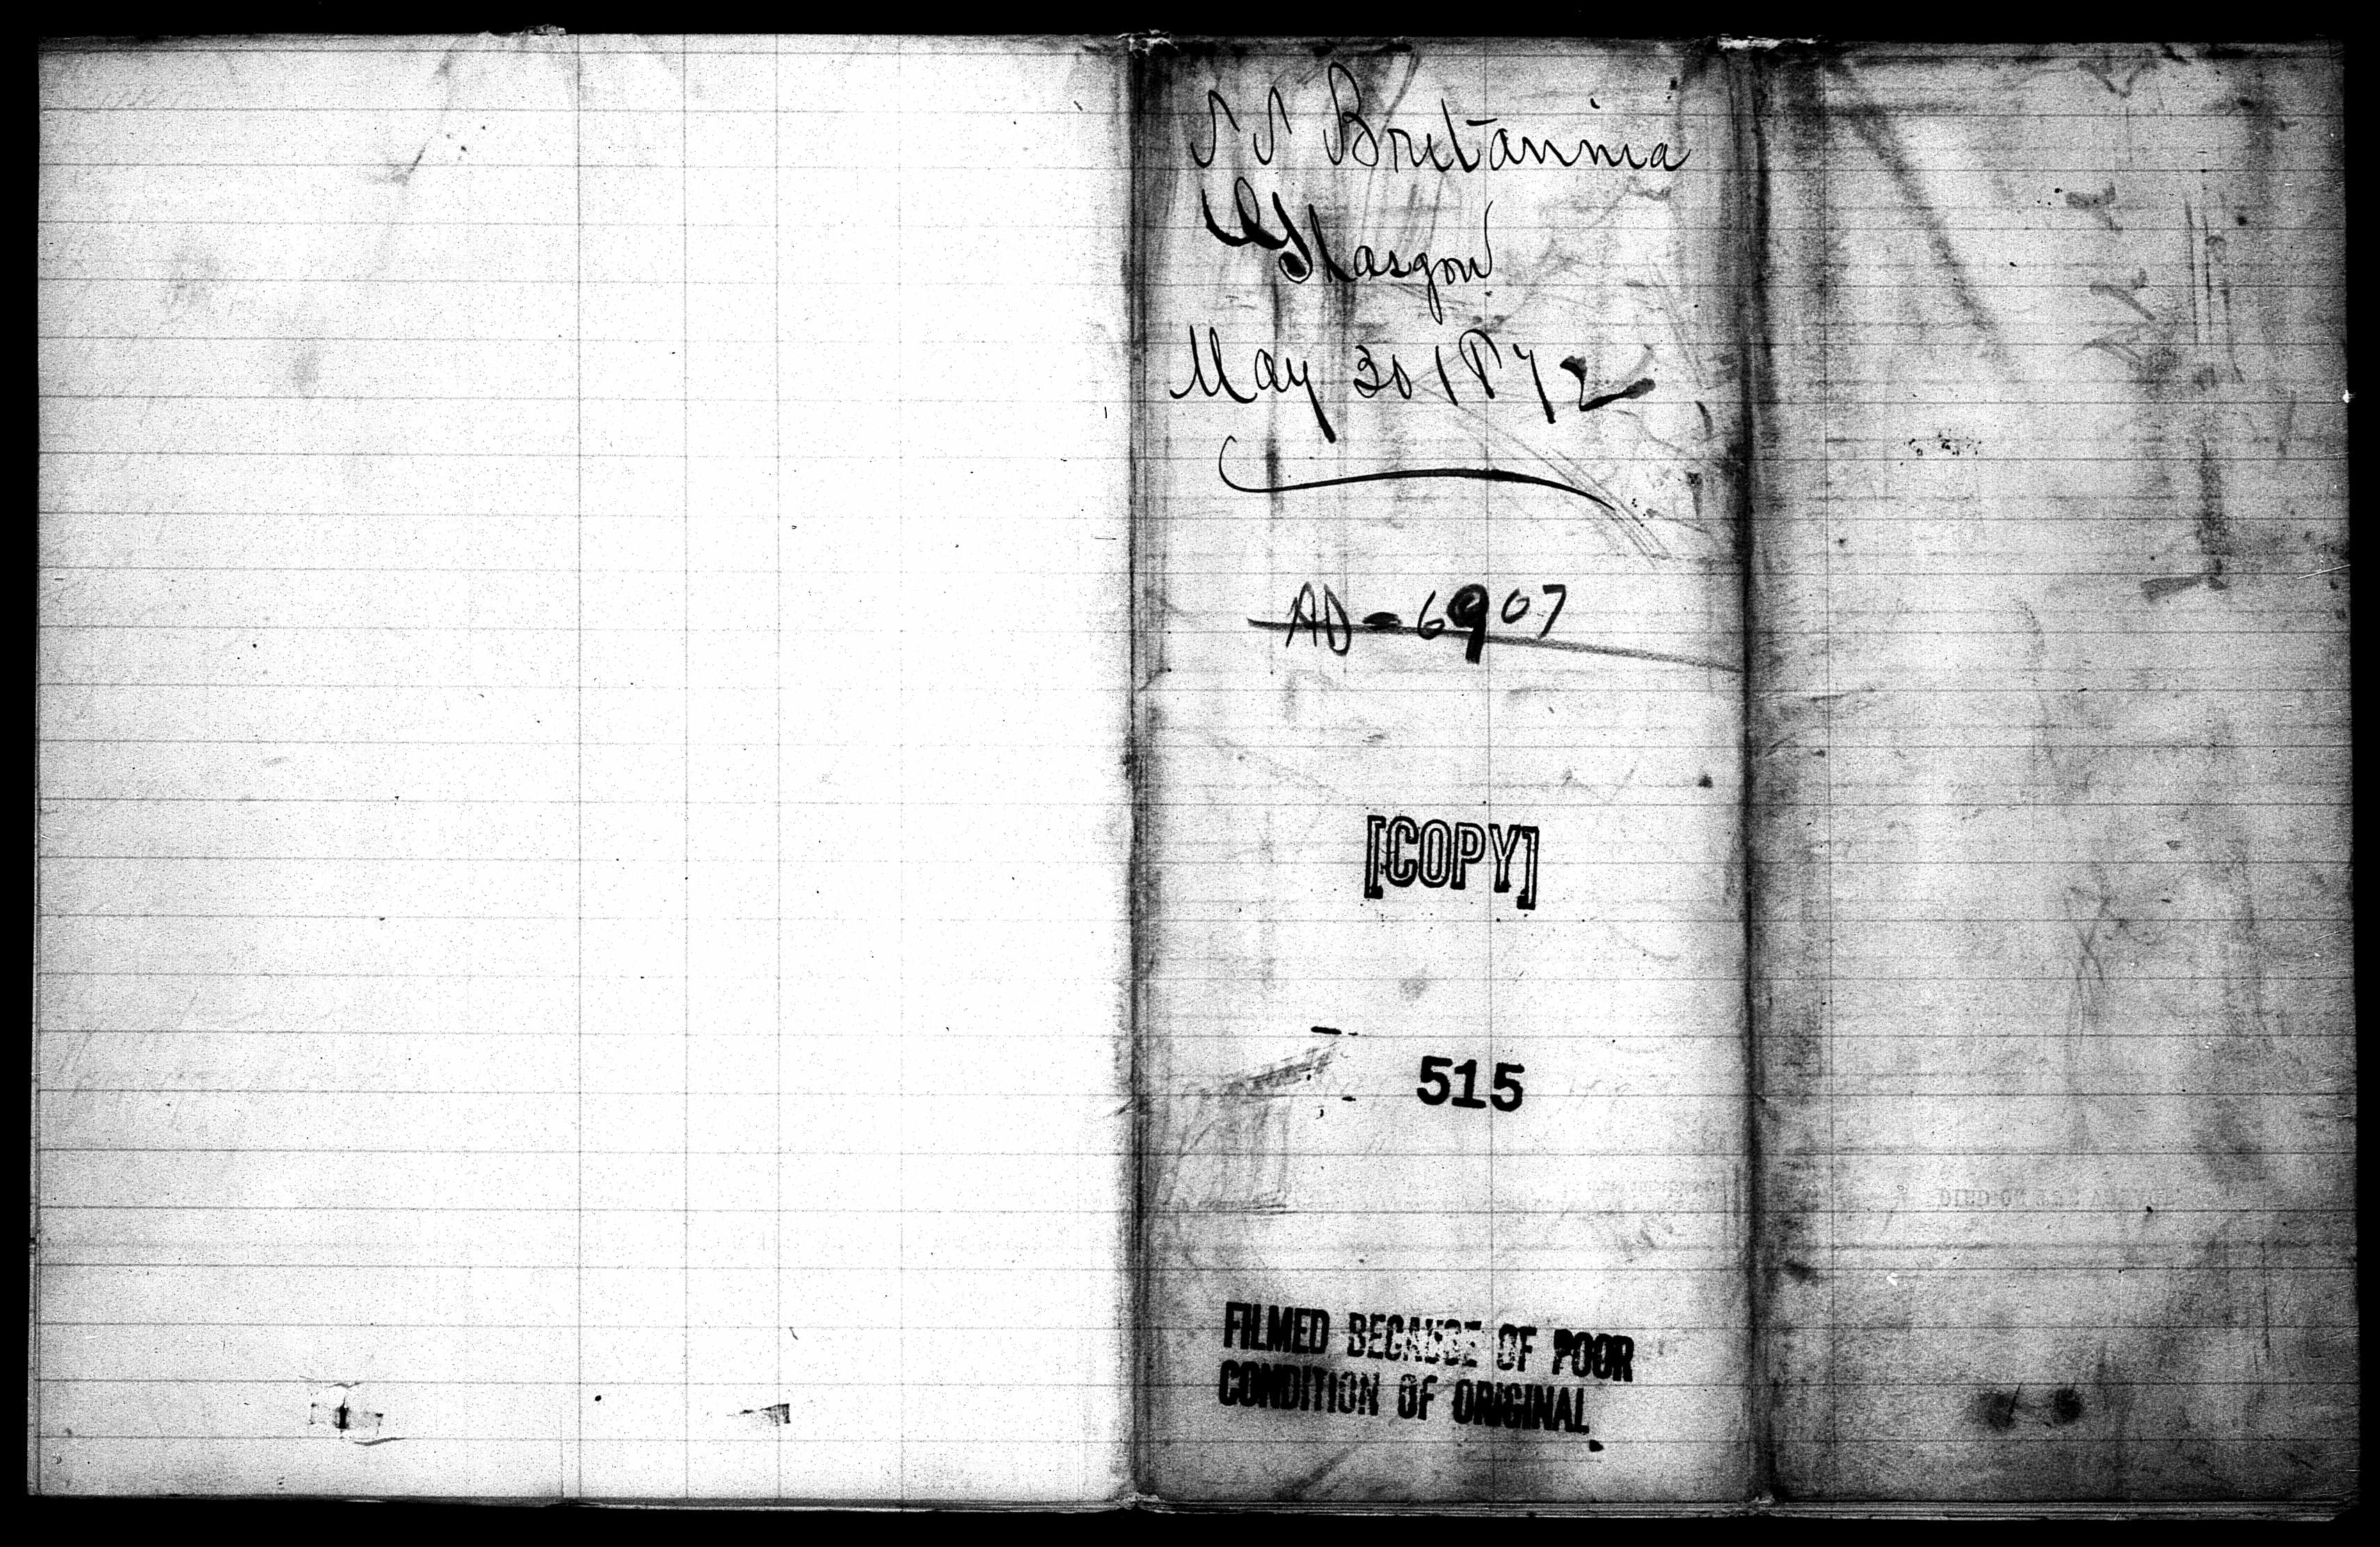 SS Britannia
Glasgow
May 30 1872
AD-6907
[COPY]
515
FILMED BECAUSE OF POOR
CONDITION OF ORIGINAL